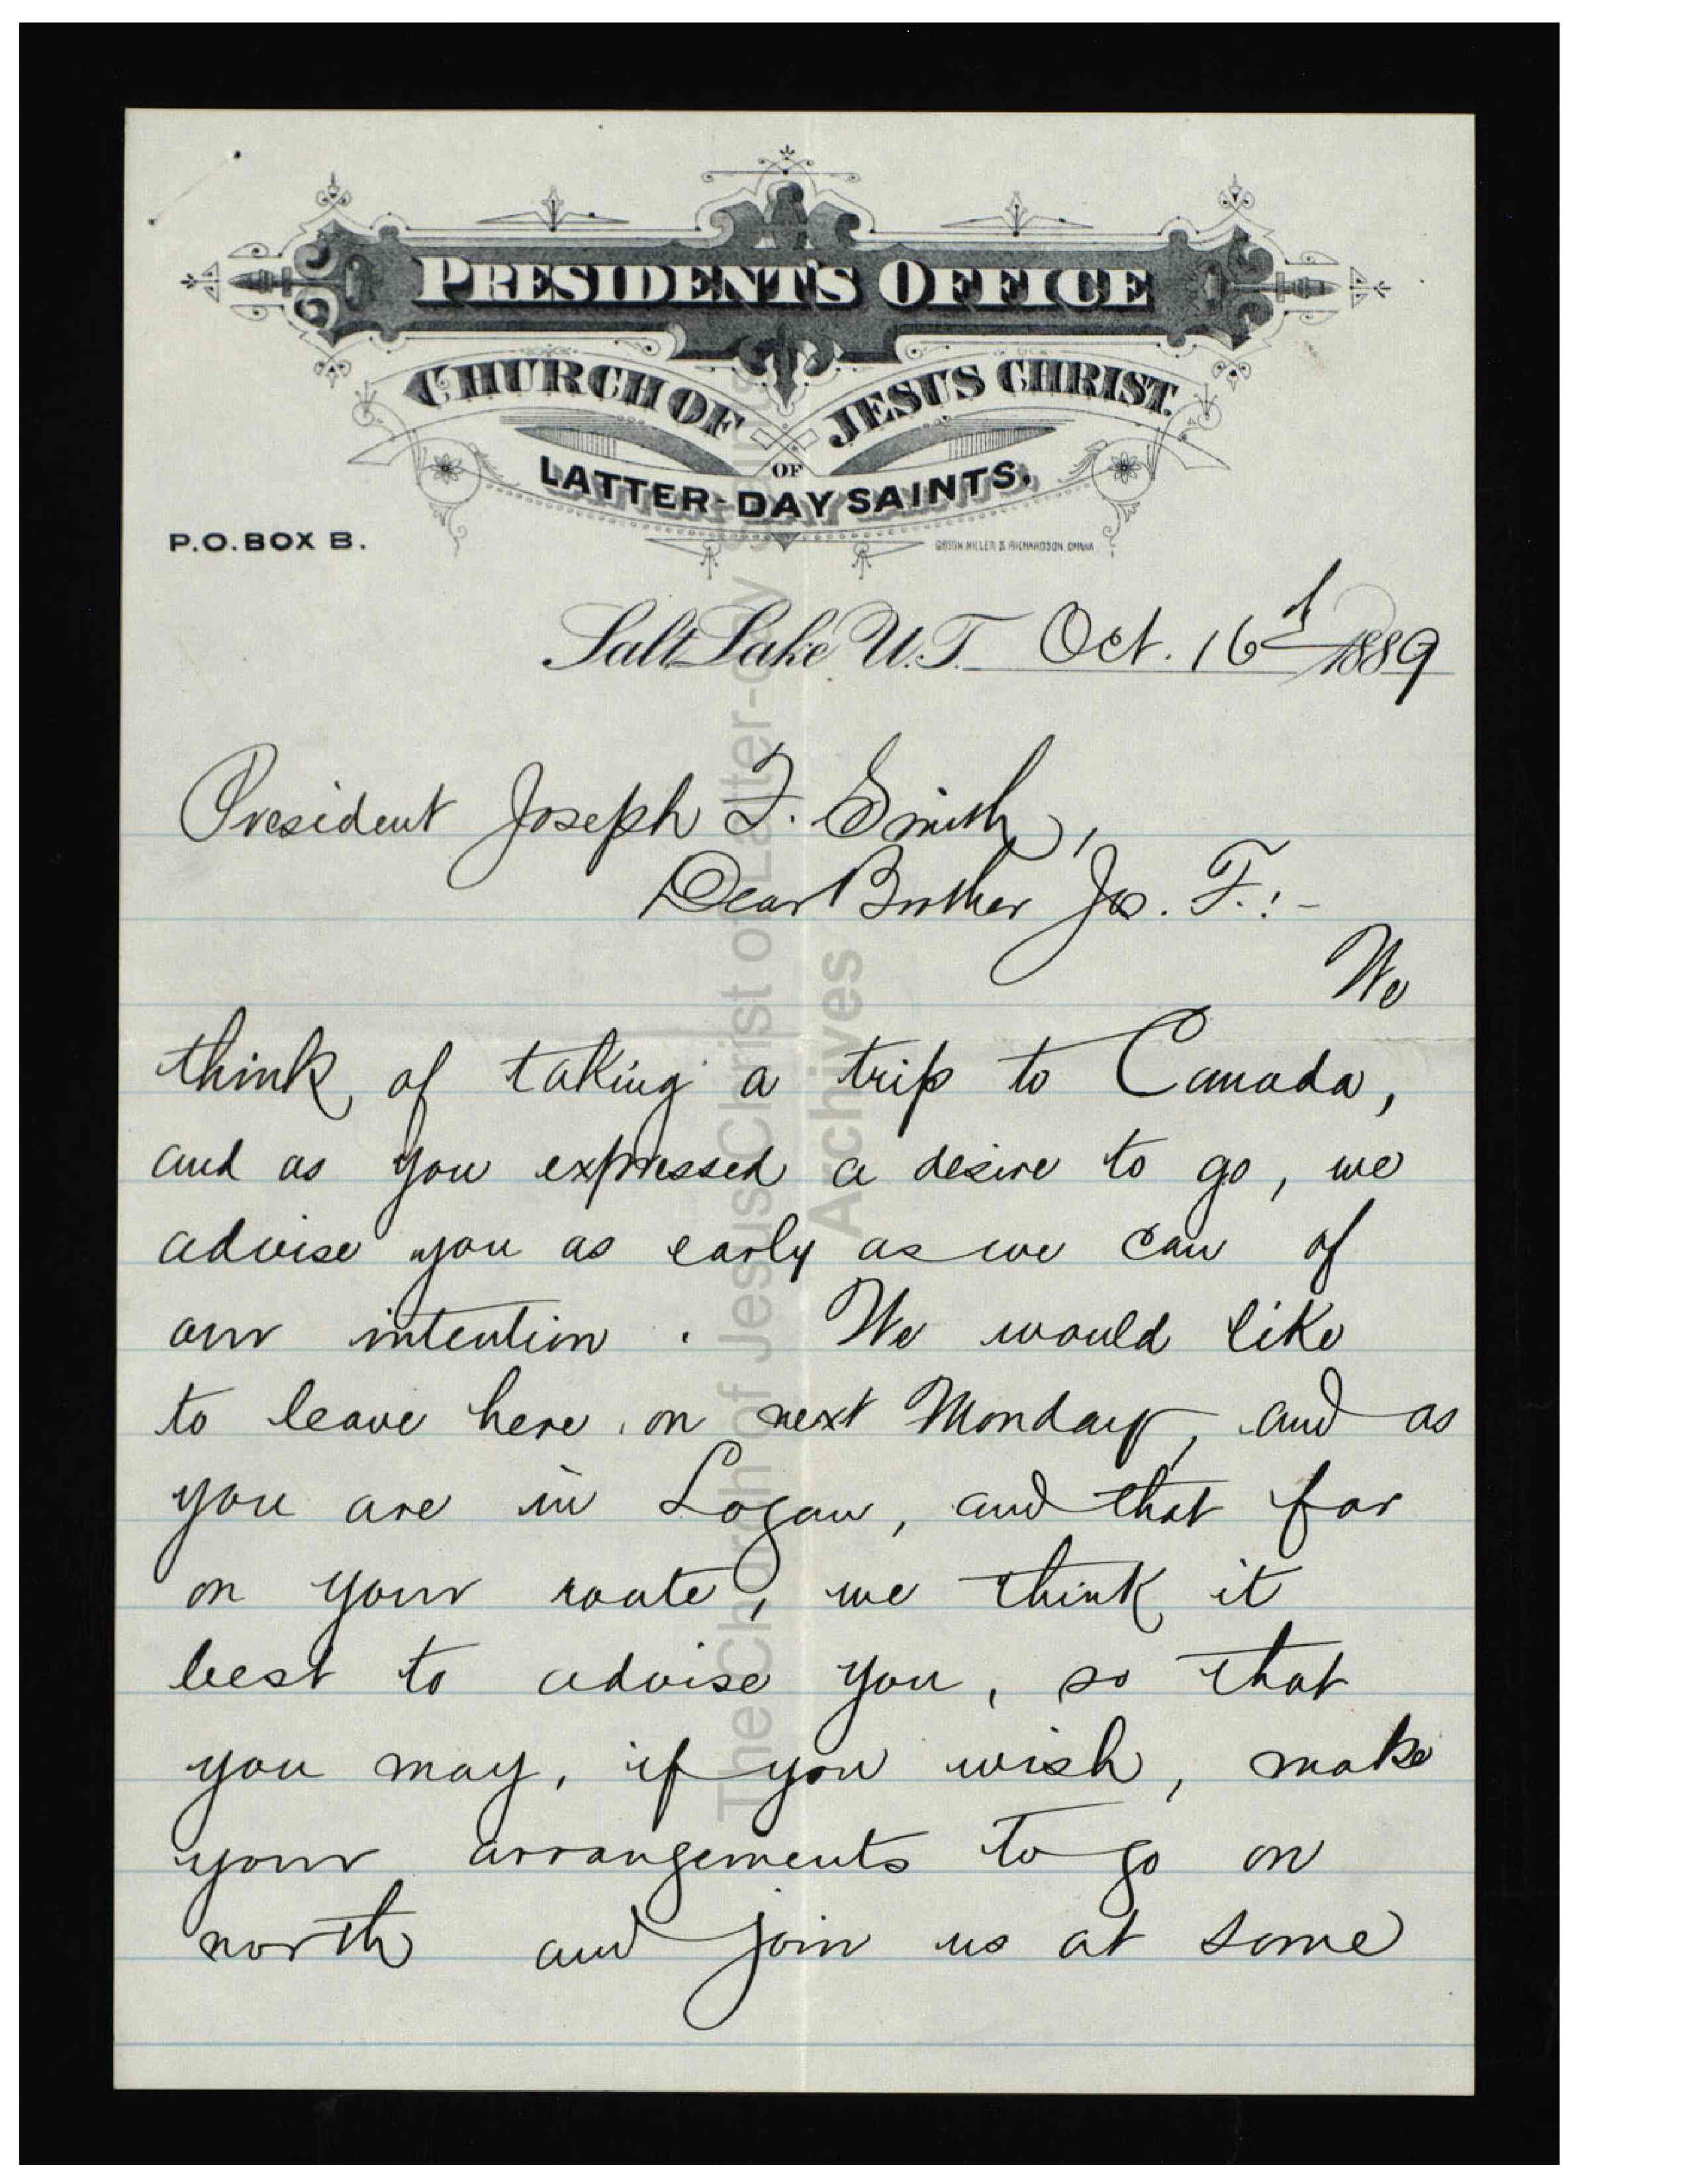 PRESIDENT'S OFFICE
CHURCH OF JESUS CHRIST
OF
LATTER-DAY SAINTS.
P.O. BOX B.
Salt Lake U.T. Oct. 16th 1889
President Joseph F. Smith,
Dear Brother Jos. F.:-
We
think of taking a trip to Canada,
and as you expressed a desire to go, we
advise you as early as we can of
our intention. We would like
to leave here on next Monday, and as
you are in Logan, and that far
on your route, we think it
best to advise you, so that
you may, if you wish, make
your arrangements to go on
north and join us at some
The Church of Jesus Christ of Latter-day Saints
Archives